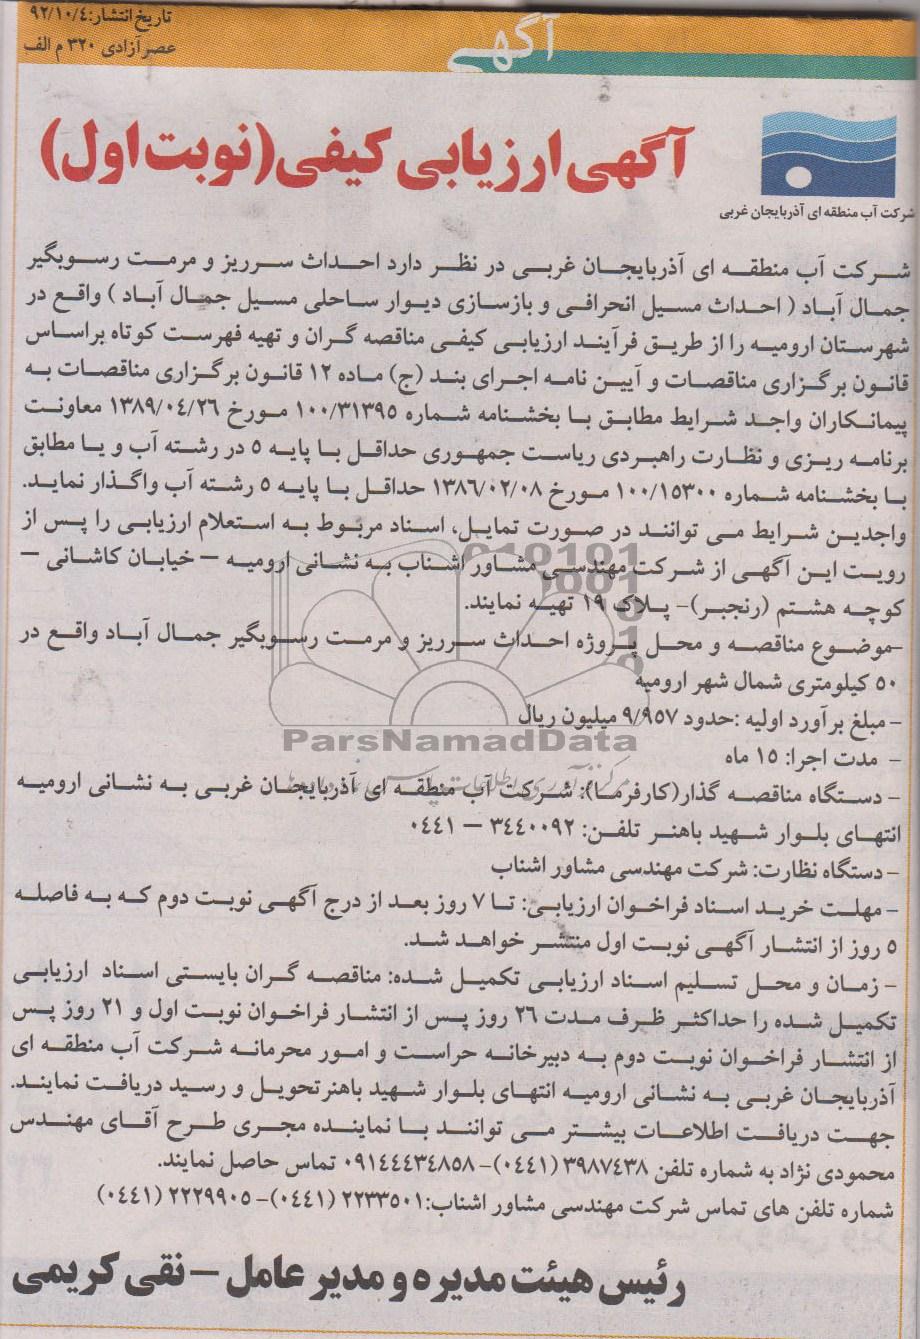 تاریخ انتشار: ۹۲/۱۰/۴
عصر آزادی ۳۲۰ م الف
آگهی
آگهی ارزیابی کیفی (نوبت اول)
شرکت آب منطقه ای آذربایجان غربی
شرکت آب منطقه ای آذربایجان غربی در نظر دارد احداث سرریز و مرمت رسوبگیر
جمال آباد ( احداث مسیل انحرافی و بازسازی دیوار ساحلی مسیل جمال آباد ) واقع در
شهرستان ارومیه را از طریق فرآیند ارزیابی کیفی مناقصه گران و تهیه فهرست کوتاه براساس
قانون برگزاری مناقصات و آیین نامه اجرای بند (ج) ماده ۱۲ قانون برگزاری مناقصات به
پیمانکاران واجد شرایط مطابق با بخشنامه شماره ۱۰۰/۳۱۳۹۵ مورخ ۱۳۸۹/۰۴/۲۶ معاونت
برنامه ریزی و نظارت راهبردی ریاست جمهوری حداقل با پایه ۵ در رشته آب و یا مطابق
با بخشنامه شماره ۱۰۰/۱۵۳۰۰ مورخ ۱۳۸۶/۰۲/۰۸ حداقل با پایه ۵ رشته آب واگذار نماید.
واجدین شرایط می توانند در صورت تمایل، اسناد مربوط به استعلام ارزیابی را پس از
رویت این آگهی از شرکت مهندسی مشاور اشناب به نشانی ارومیه – خیابان کاشانی –
کوچه هشتم (رنجبر)- پلاک ۱۹ تهیه نمایند.
-موضوع مناقصه و محل پروژه احداث سرریز و مرمت رسوبگیر جمال آباد واقع در
۵۰ کیلومتری شمال شهر ارومیه
- مبلغ برآورد اولیه :حدود ۹/۹۵۷ میلیون ریال
ParsNamadData
- مدت اجرا: ۱۵ ماه
- دستگاه مناقصه گذار(کارفرما): شرکت آب منطقه ای آذربایجان غربی به نشانی ارومیه
انتهای بلوار شهید باهنر تلفن: ۳۴۴۰۰۹۲ – ۰۴۴۱
- دستگاه نظارت: شرکت مهندسی مشاور اشناب
- مهلت خرید اسناد فراخوان ارزیابی: تا ۷ روز بعد از درج آگهی نوبت دوم که به فاصله
۵ روز از انتشار آگهی نوبت اول منتشر خواهد شد.
- زمان و محل تسلیم اسناد ارزیابی تکمیل شده: مناقصه گران بایستی اسناد ارزیابی
تکمیل شده را حداکثر ظرف مدت ۲۶ روز پس از انتشار فراخوان نوبت اول و ۲۱ روز پس
از انتشار فراخوان نوبت دوم به دبیرخانه حراست و امور محرمانه شرکت آب منطقه ای
آذربایجان غربی به نشانی ارومیه انتهای بلوار شهید باهنر تحویل و رسید دریافت نمایند.
جهت دریافت اطلاعات بیشتر می توانند با نماینده مجری طرح آقای مهندس
محمودی نژاد به شماره تلفن ۳۹۸۷۴۳۸ (۰۴۴۱)- ۰۹۱۴۴۴۳۴۸۵۸ تماس حاصل نمایند.
شماره تلفن های تماس شرکت مهندسی مشاور اشناب:۲۲۳۳۵۰۱ (۰۴۴۱)- ۲۲۲۹۹۰۵ (۰۴۴۱)
رئیس هیئت مدیره و مدیر عامل – نقی کریمی